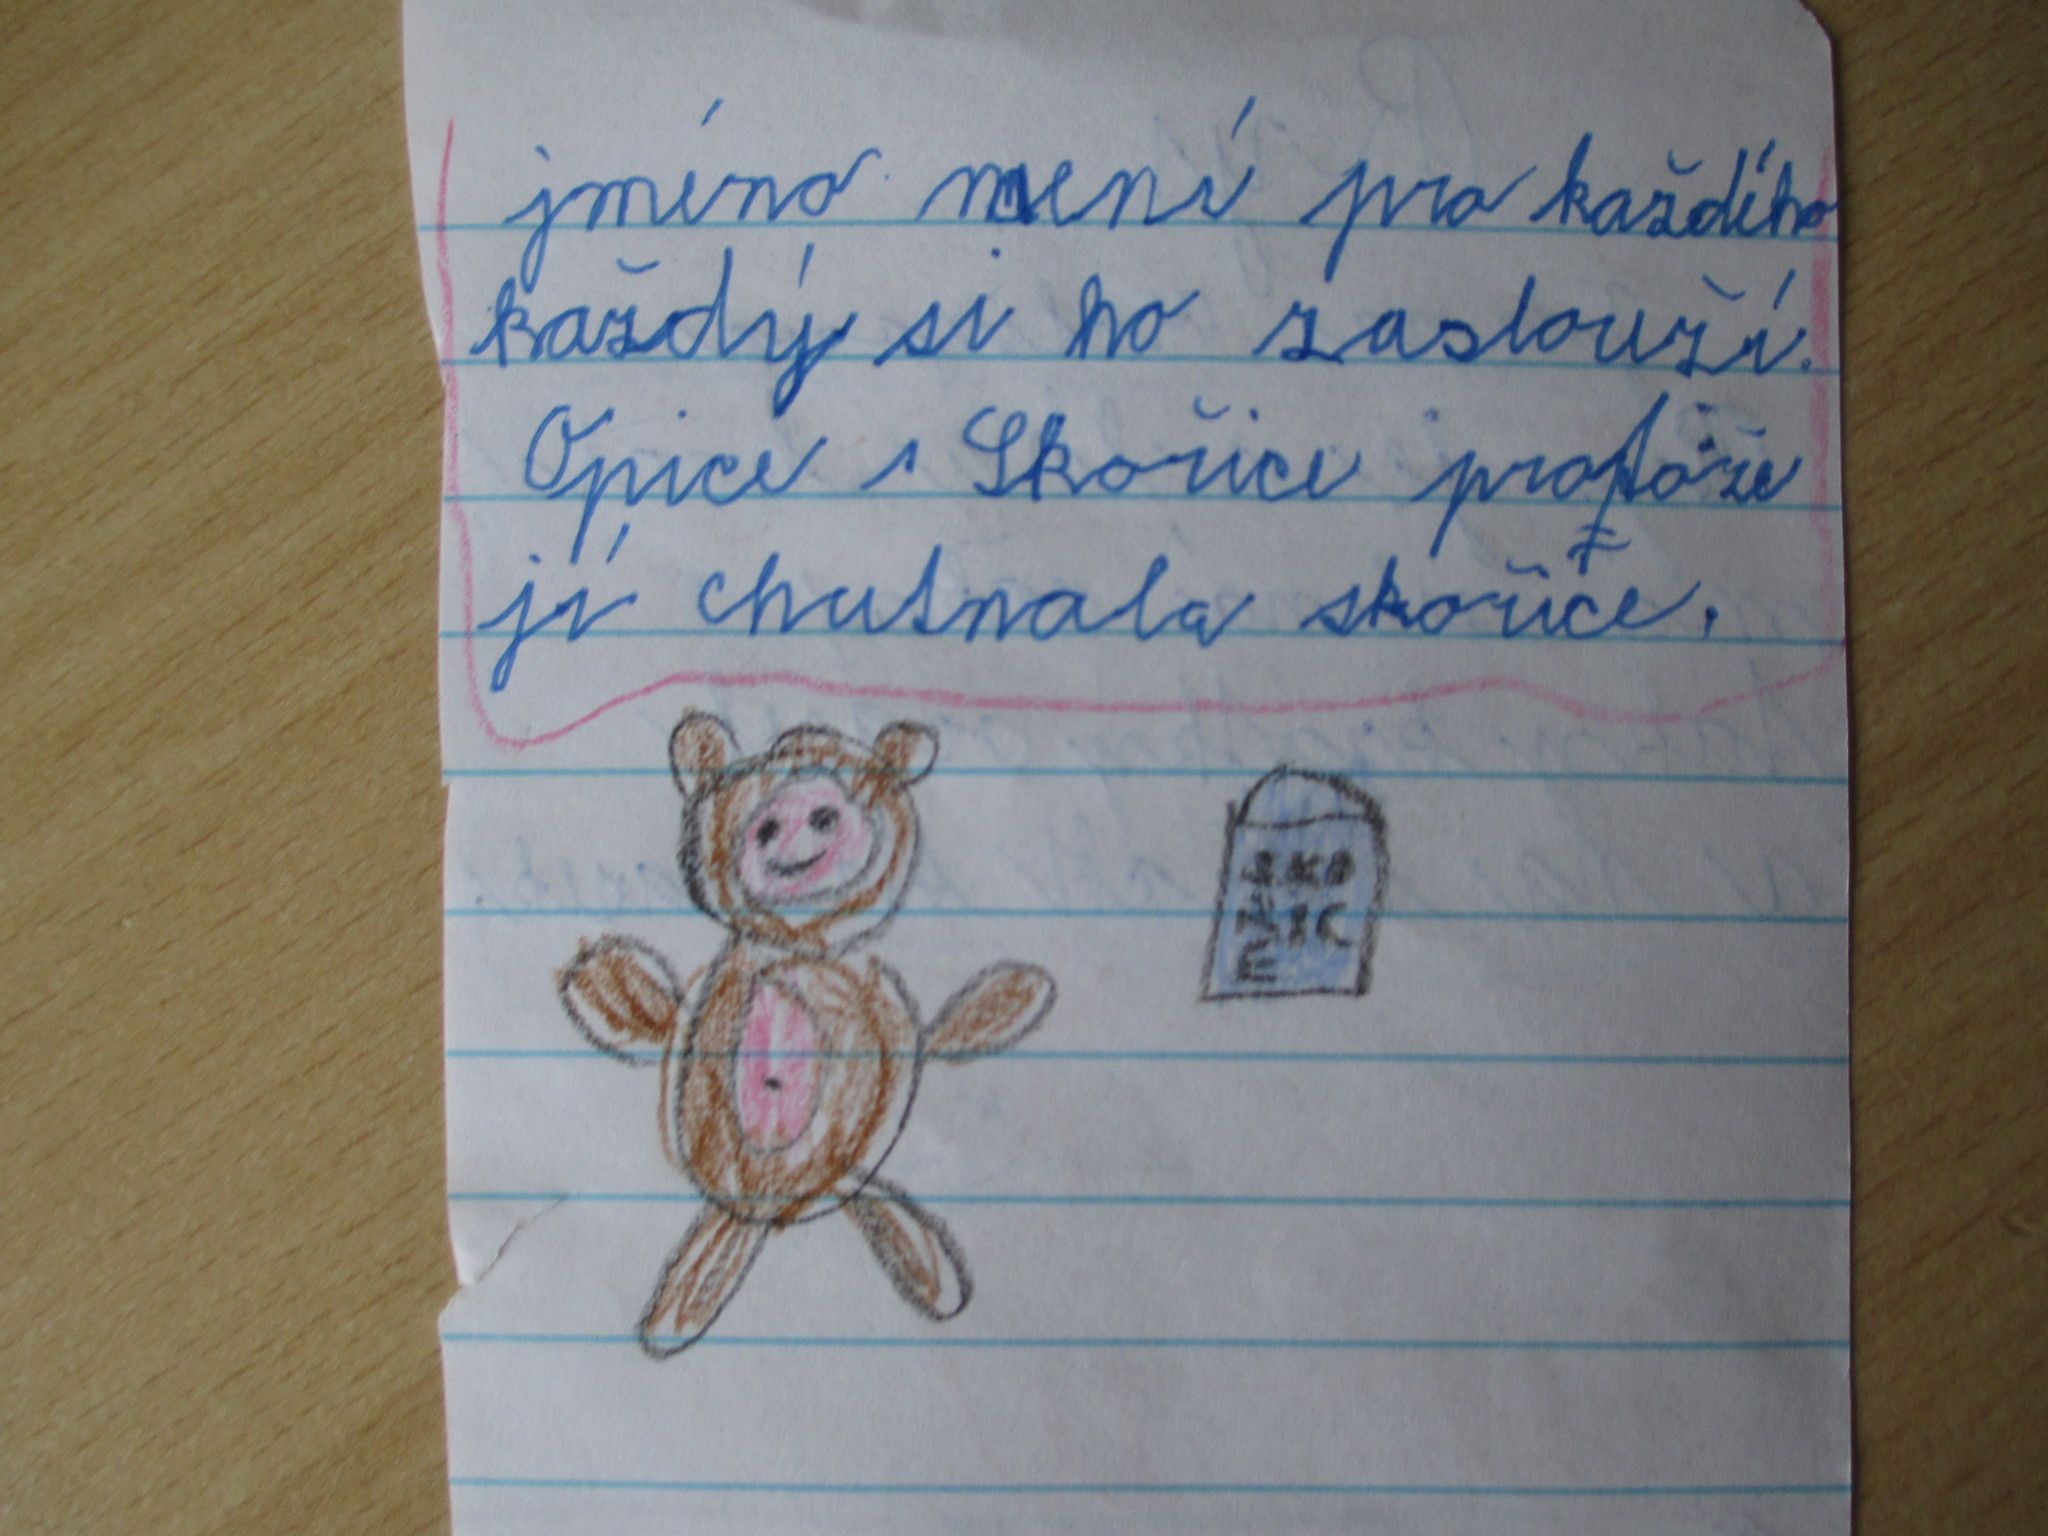 jméno není pro každího
každý si ho zaslouží.
Opice s Skořice protože
jí chutnala skořice.
SKO
ŘIC
E